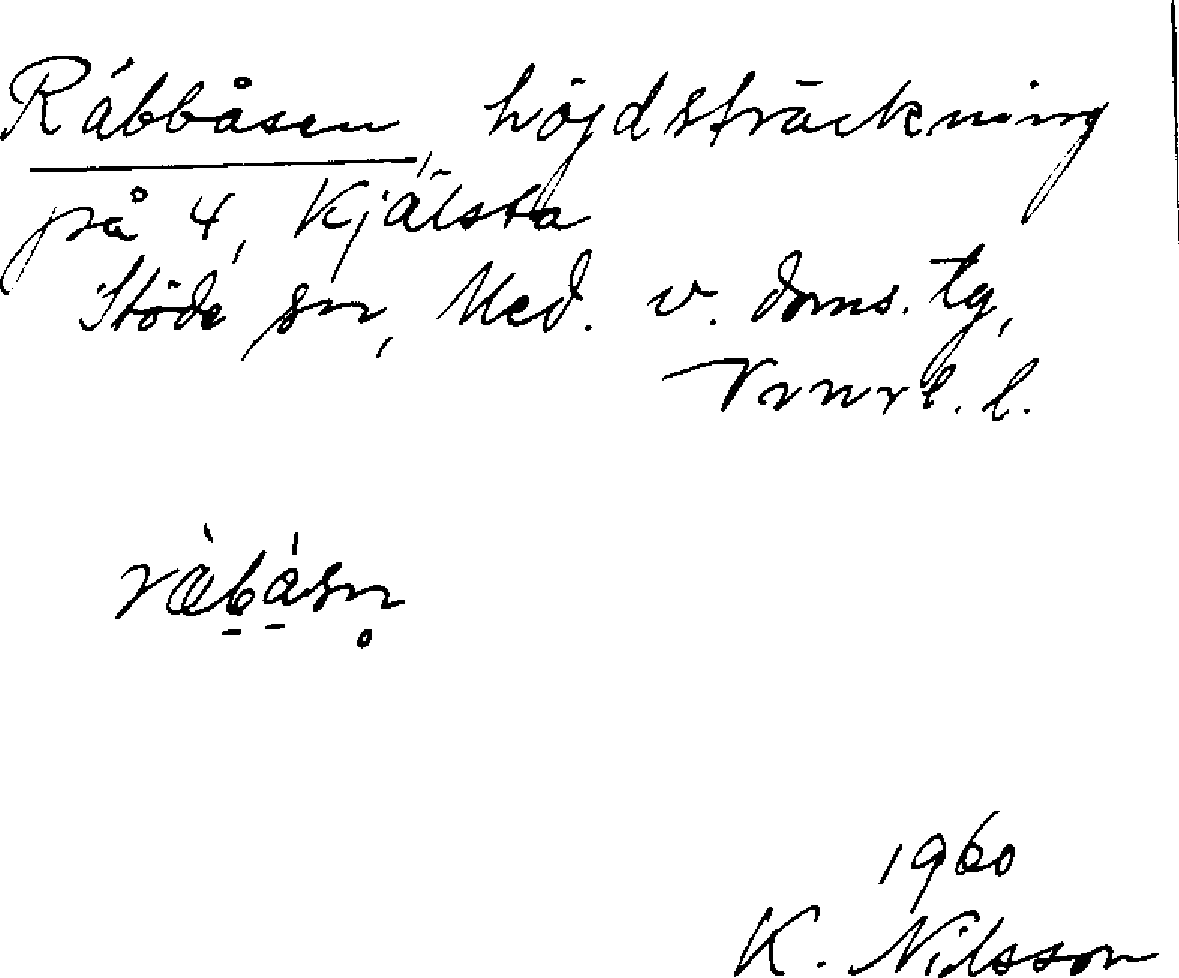 Rábbåsen, höjdsträckning
på 4, Kjälsta
Stöde sn, Med. v. doms. tg,
Vnrl. l.
ràbá̀sn̥
1960
K. Nilsson